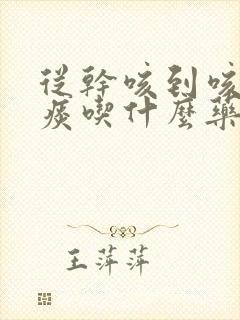 從幹咳到咳
痰喫什麼藥
王萍萍